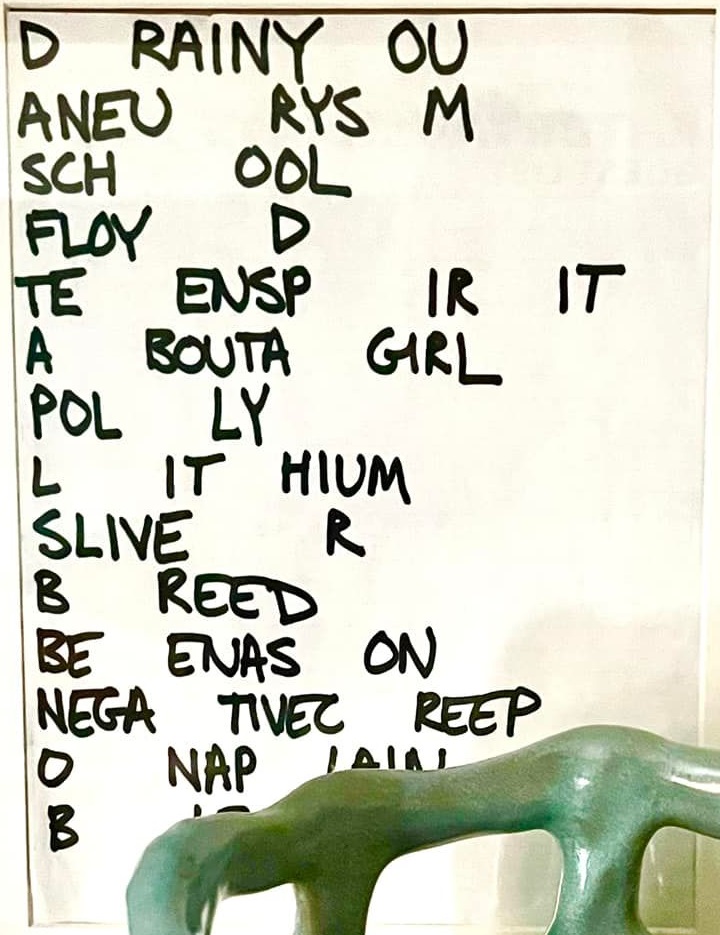 D RAINY OU
ANEU RYS M
SCH OOL
FLOY D
TE ENSP IR IT
A BOUTA GIRL
POL LY
L IT HIUM
SLIVE R
B REED
BE ENAS ON
NEGA TIVEC REEP
O NAP
B